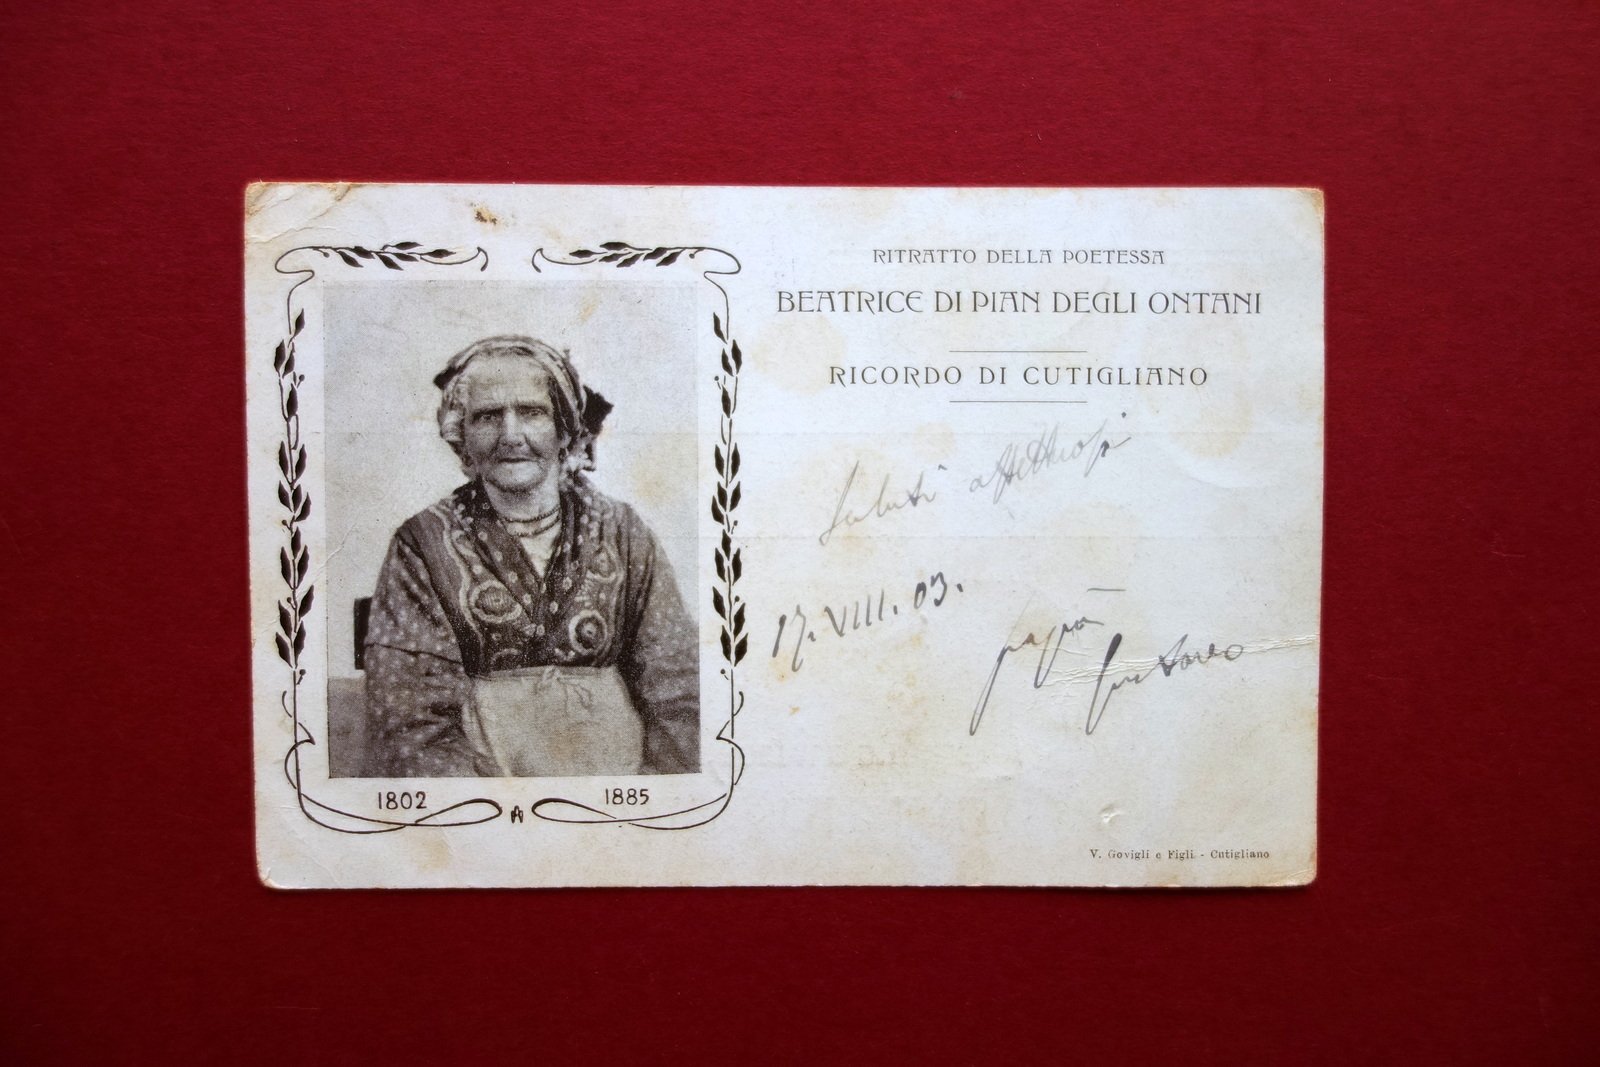 RITRATTO DELLA POETESSA
BEATRICE DI PIAN DEGLI ONTANI
RICORDO DI CUTIGLIANO
Saluti affettuosi
17. VIII. 03.
papà
Gustavo
1802
1885
V. Govigli e Figli - Cutigliano